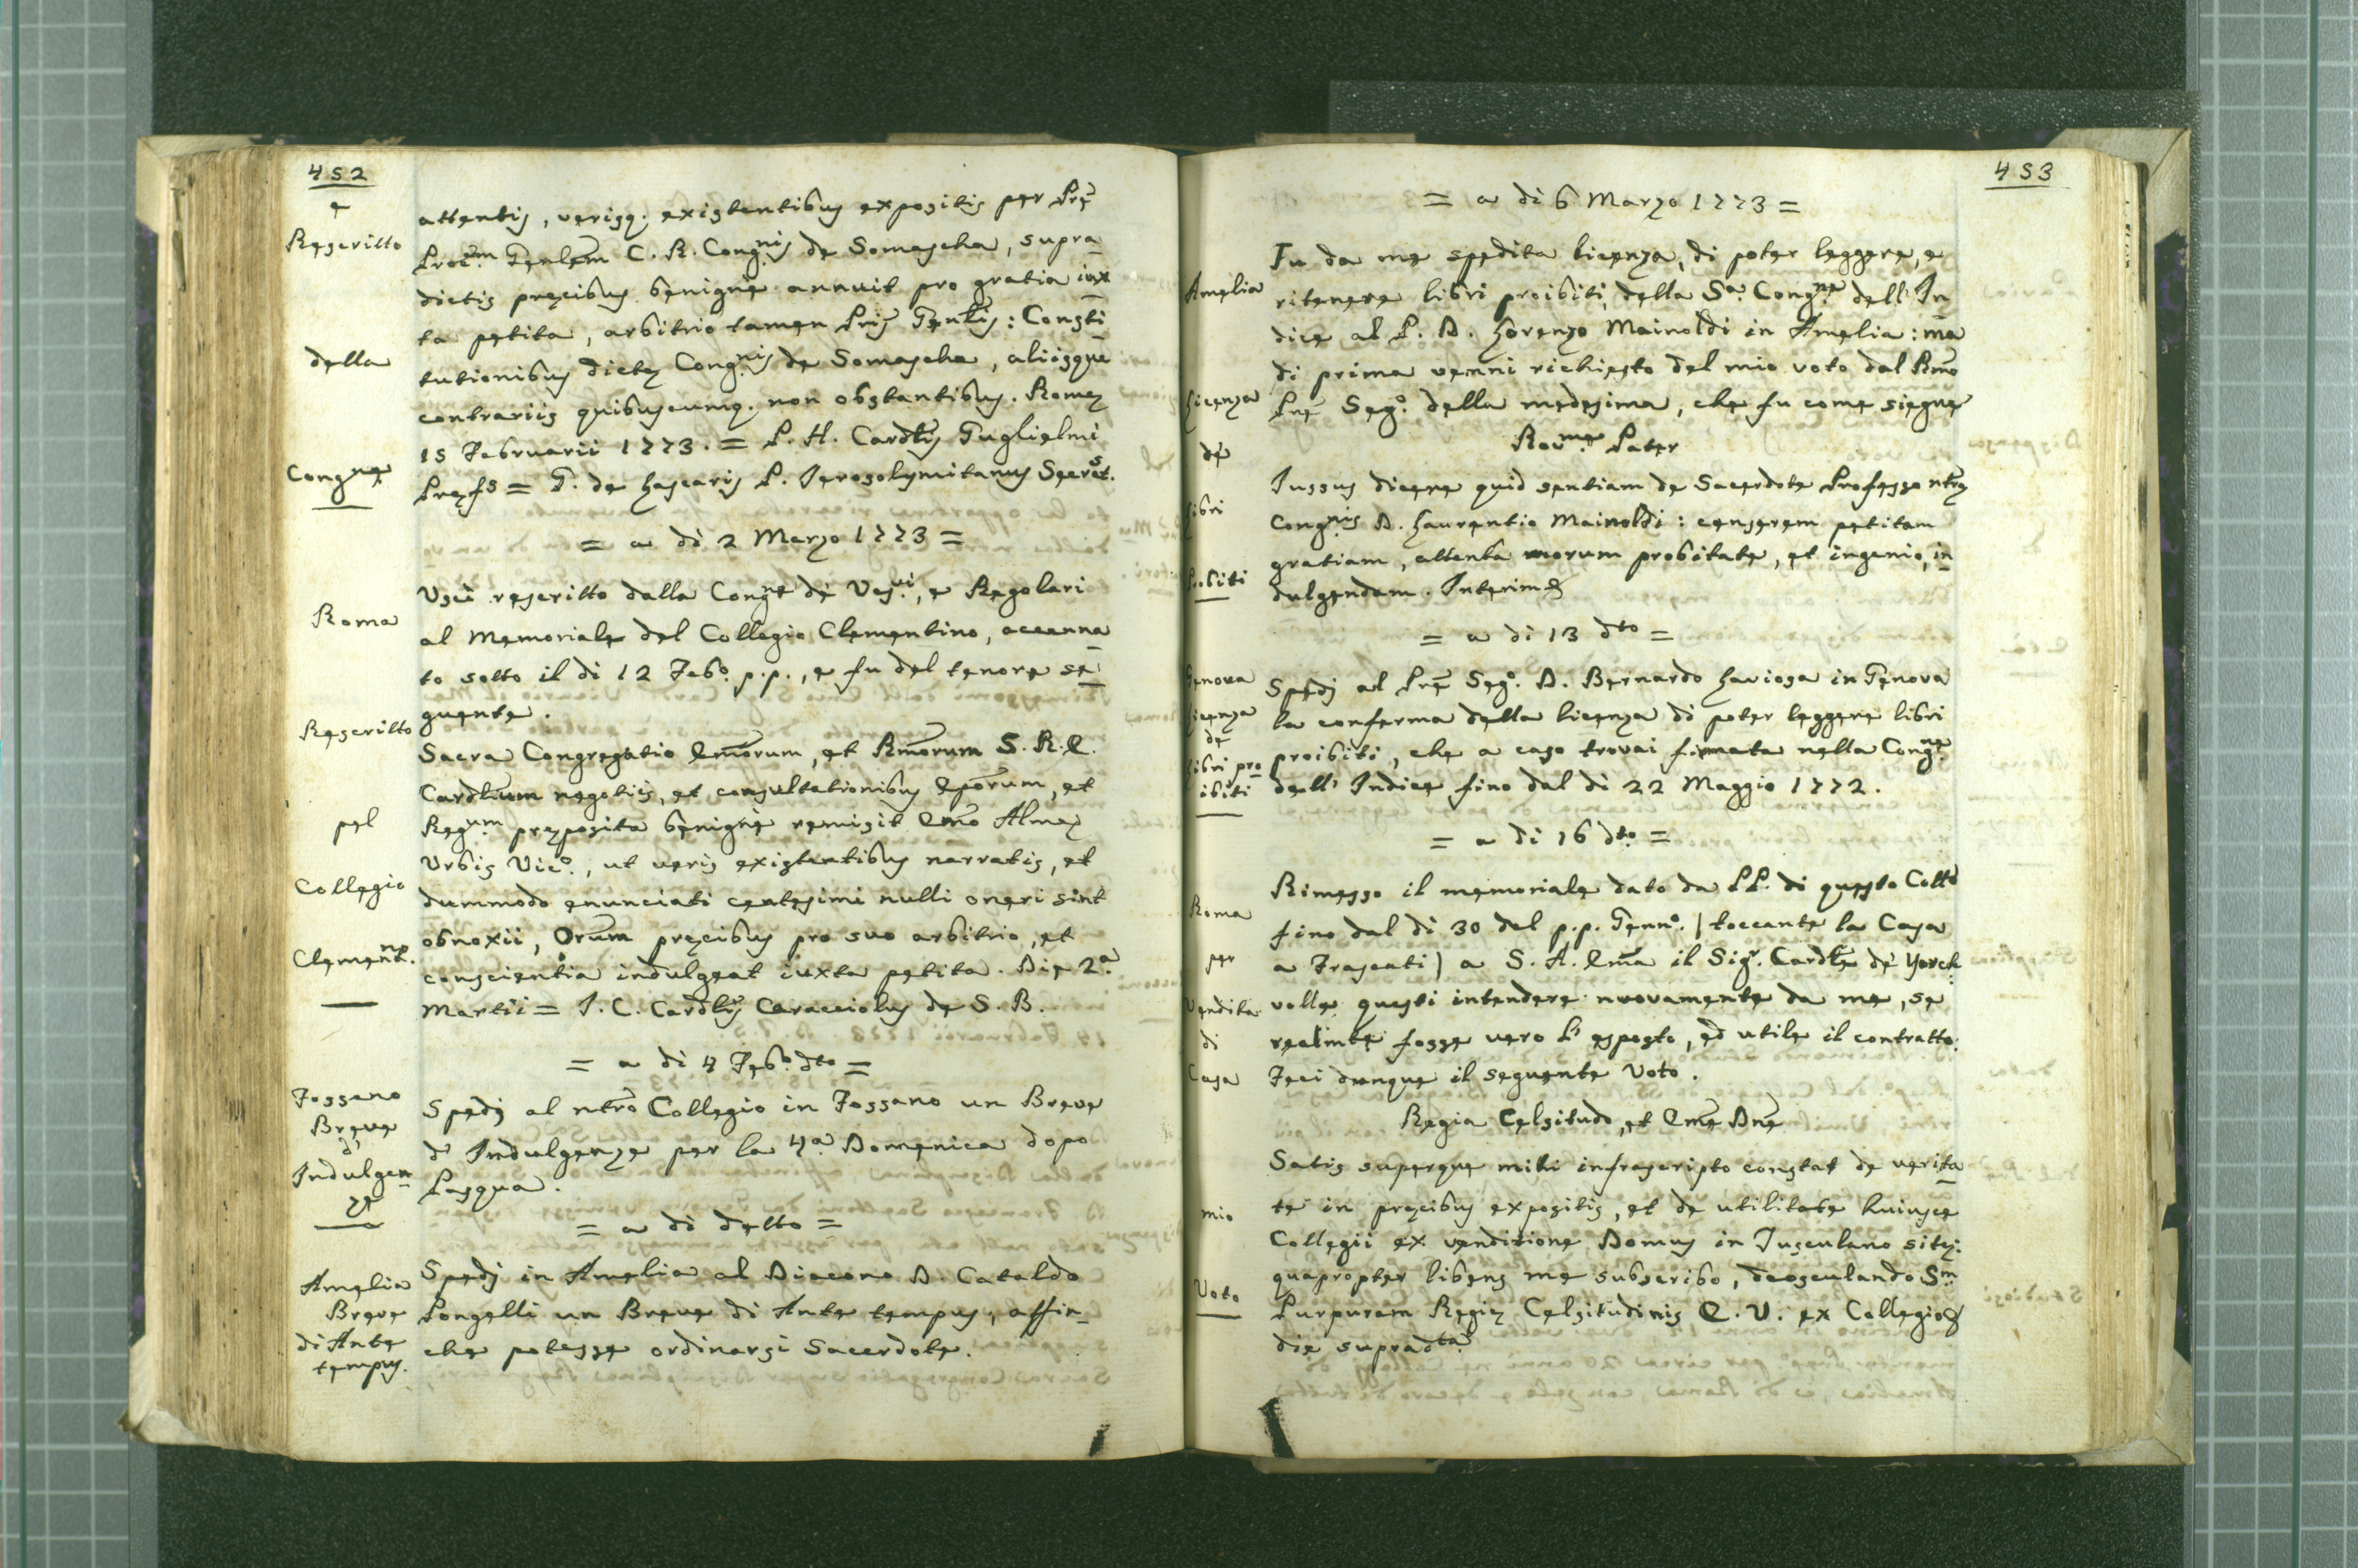 452
e
Rescritto
della
Cong.ne
Roma
Rescritto
pel
Collegio
Clement.no
Fossano
Breve
d'
Indulgen
ze
Amelia
Breve
di Ante
tempus.
attentis, verisq. existentibus expositis per Prẽ
Procm. Gẽnlem C. R. Cong.nis de Somascha, supra
dictis precibus benigne annuit pro gratia iux
ta petita, arbitrio tamen Pris Genlis: Consti
tutionibus dictę Cong.nis de Somascha, aliisque
contrariis quibuscumq. non obstantibus. Romę
15 Februarii 1773. = P. H. Cardlis Guglielmi
Pręfs = G. de Lascaris P. Ierosolymitanus Secret.s
= a di 2 Marzo 1773 =
Uscì rescritto dalla Cong.ne dè Ves.vi, e Regolari
al Memoriale del Collegio Clementino, accenna
to sotto il di 12 Febo. p.p., e fu del tenore se
guente.
Sacra Congregatio Emorum, et Rmorum S. R. E.
Cardlium negotiis, et consultationibus Eporum, et
Reg.um pręposita benignè remisit Emo Almę
Urbis Vic.o, ut veris existentibus narratis, et
dummodo enunciati centesimi nulli oneri sint
obnoxii, Orum precibus pro suo arbitrio, et
conscientia indulgeat iuxta petita. Die 2.a
Martii = I. C. Cardlis Caracciolus de S. B.
= a di 4 Febo. dto =
Spedj al ntro Collegio in Fossano un Breve
d' Indulgenze per la 4.a Domenica dopo
Pasqua.
= a di detto =
Spedj in Amelia al Diacono D. Cataldo
Pongelli un Breve di Ante tempus, affin
che potesse ordinarsi Sacerdote.
453
Amelia
Licenza
de
Libri
Proibiti
Genova
Licenza
de
Libri pro
ibiti
Roma
per
Vendita
di
Casa
mio
Voto
= a di 6 Marzo 1773 =
Fu da me spedita licenza, di poter leggere, e
ritenere libri proibiti, della S.a Cong.ne dell' In
dice al P. D. Lorenzo Mainoldi in Amelia: ma
di prima venni richiesto del mio voto dal Rmo
Prẽ Seg.o della medesima, che fu come siegue
Rev.me Pater
Iussus dicere quid sentiam de Sacerdote Professo ntrę
Cong.nis D. Laurentio Mainoldi: censerem petitam
gratiam, attenta morum probitate, et ingenio, in
dulgendam. Interim &
= a di 13 dto =
Spedj al Prẽ Seg.o D. Bernardo Laviosa in Genova
la conferma della licenza di poter leggere libri
proibiti, che a caso trovai firmata nella Cong.ne
dell' Indice fino dal di 22 Maggio 1772.
= a di 16 dto. =
Rimesso il memoriale dato da PP. di questo Collo
fino dal di 30 del p.p. Genn.o (toccante la Casa
a Frascati) a S. A. Ema il Sig.r Cardle dè Yorck:
volle questi intendere nuovamente da me, se
realmte fosse vero l' esposto, ed utile il contratto:
Feci dunque il seguente Voto.
Regia Celsitudo, et Eme Dne
Satis superque mihi infrascripto constat de verita
te in precibus expositis, et de utilitate huiusce
Collegii ex venditione Domus in Tusculano sitę:
quapropter libens me subscribo, deosculando S.m
Purpuram Regię Celsitudinis E. V. ex Collegio &
die supradta.